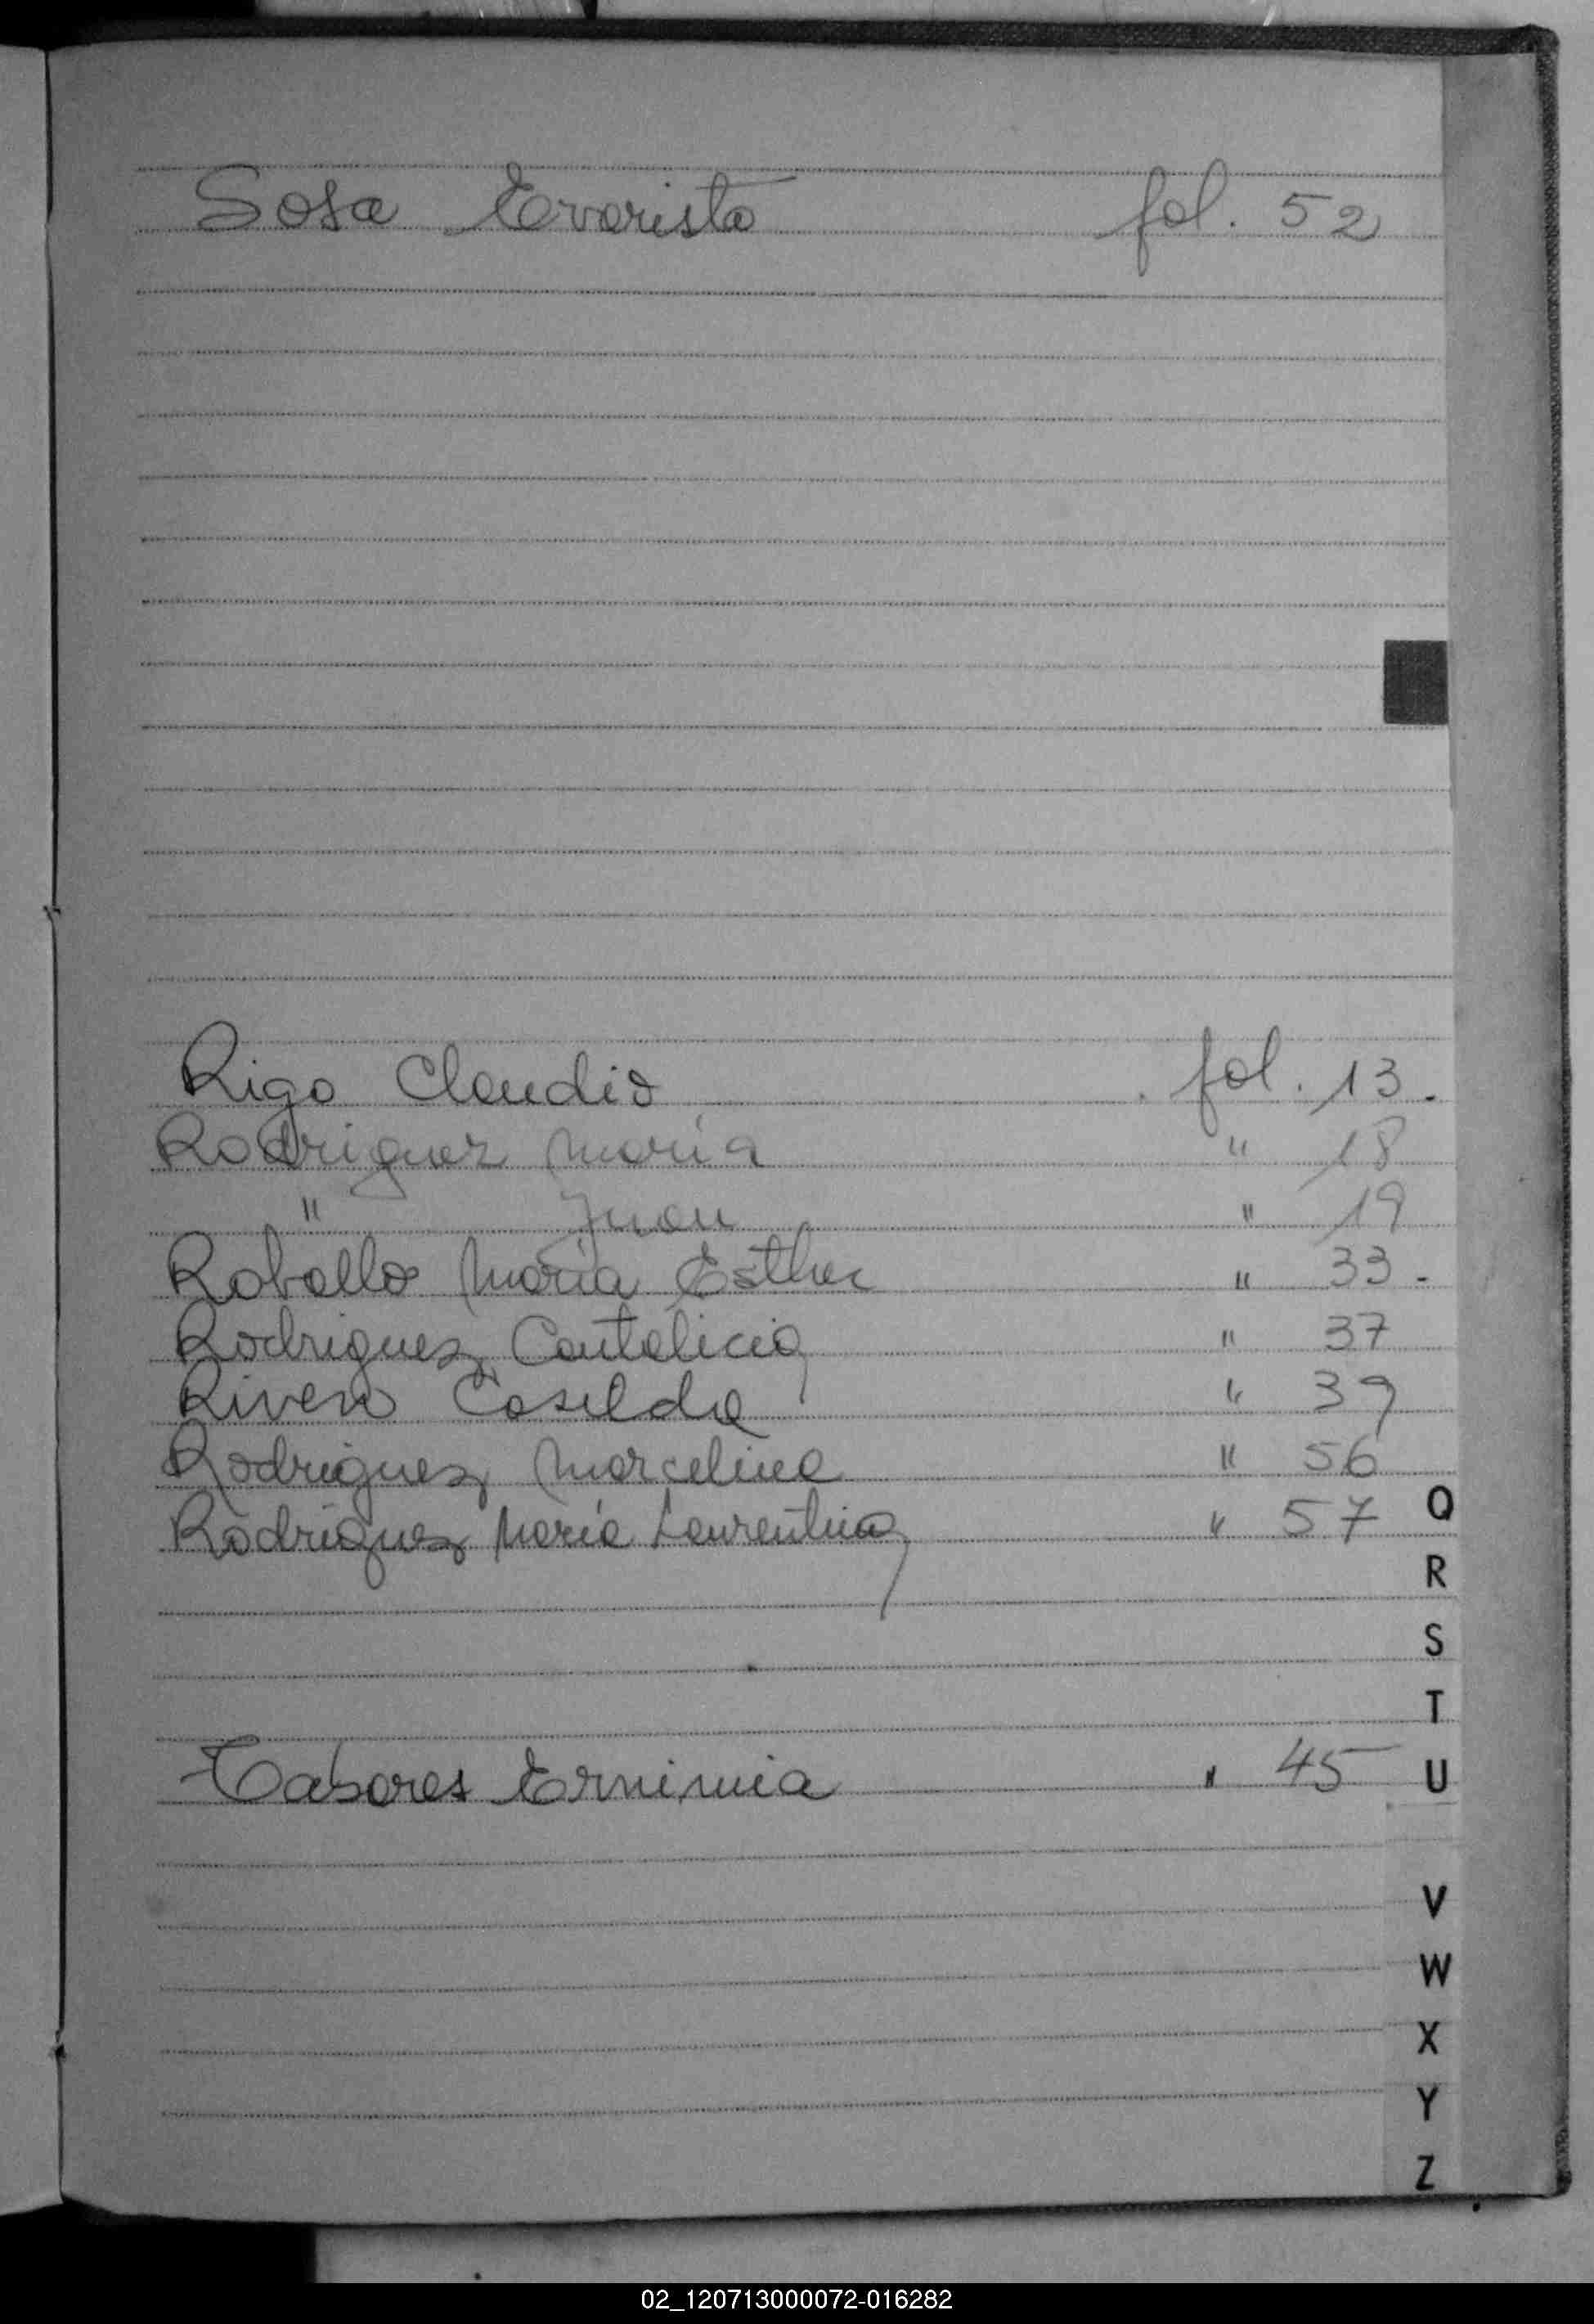 Sosa Evaristo fol. 52
Rigo Claudio fol. 13.
Rodriguez María " 18
" Juan " 19
Roballo María Esther " 33.
Rodriguez Cantalicia " 37
Rivero Casilda " 39
Rodriguez Marcelina " 56
Rodriguez María Laurentina " 57
Q
R
S
T
Tabares Erminia " 45
U
V
W
X
Y
Z
02_120713000072-016282